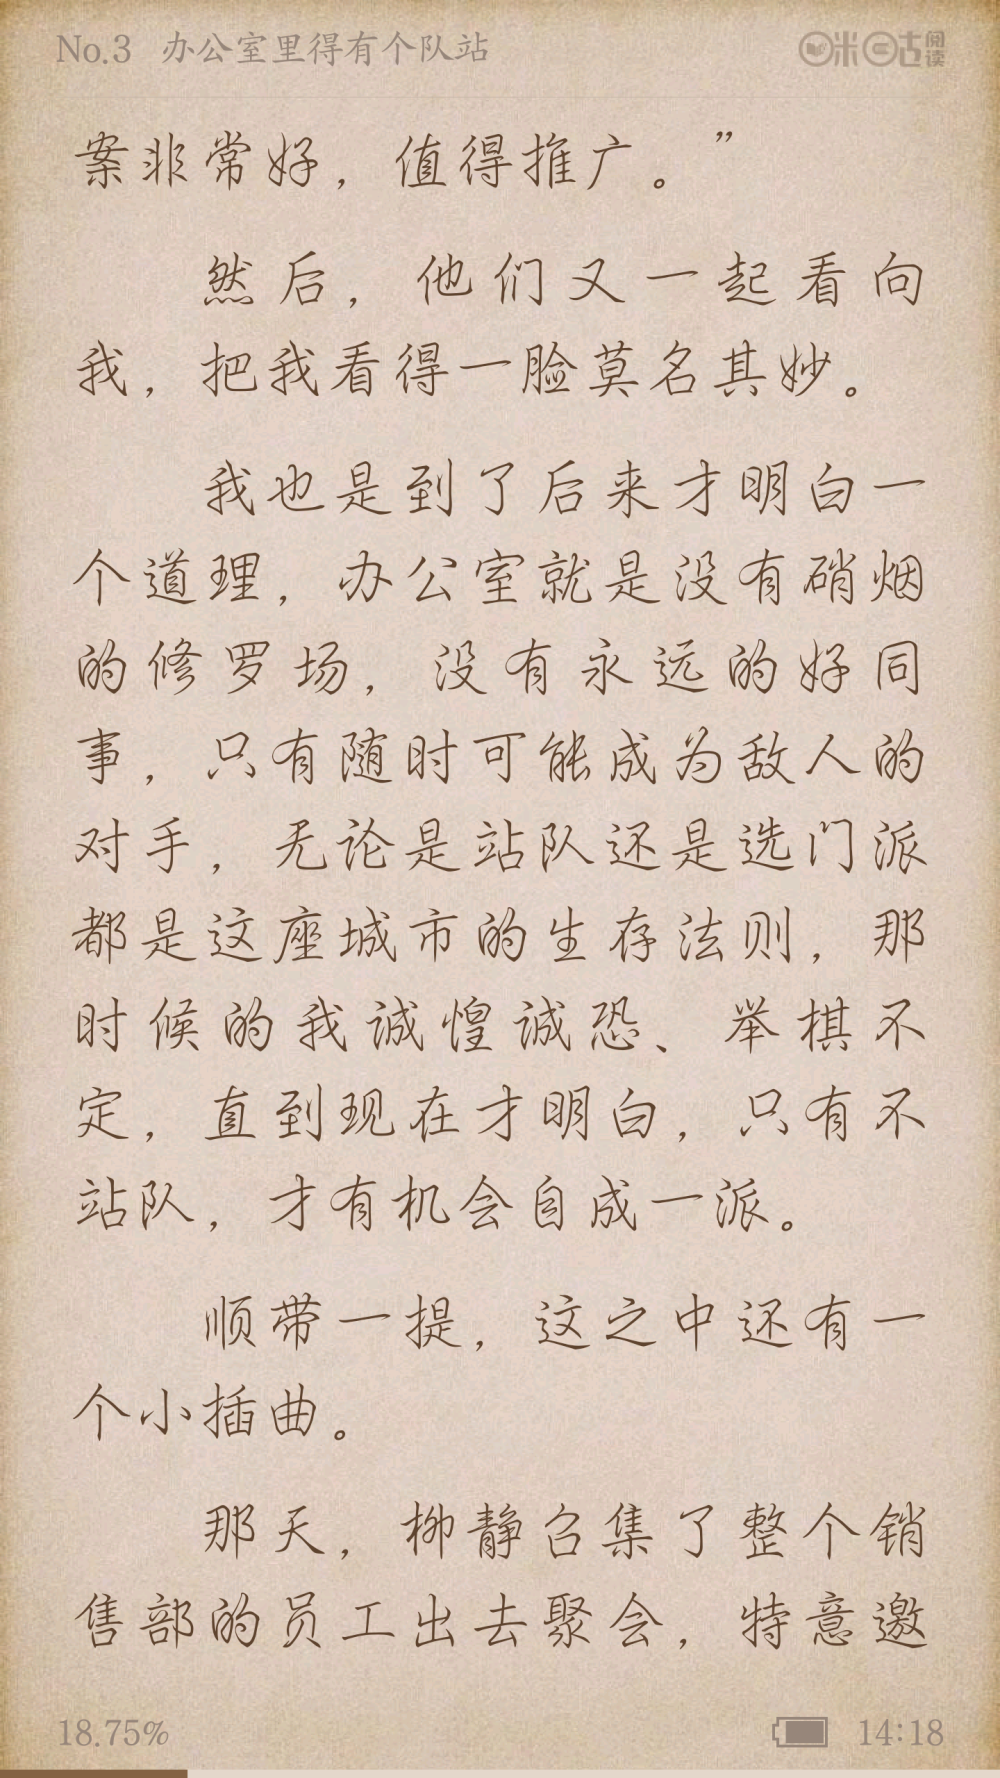 No.3 办公室里得有个队站
咪咕阅读
案非常好，值得推广。”
然后，他们又一起看向
我，把我看得一脸莫名其妙。
我也是到了后来才明白一
个道理，办公室就是没有硝烟
的修罗场，没有永远的好同
事，只有随时可能成为敌人的
对手，无论是站队还是选门派
都是这座城市的生存法则，那
时候的我诚惶诚恐、举棋不
定，直到现在才明白，只有不
站队，才有机会自成一派。
顺带一提，这之中还有一
个小插曲。
那天，柳静召集了整个销
售部的员工出去聚会，特意邀
18.75%
14:18